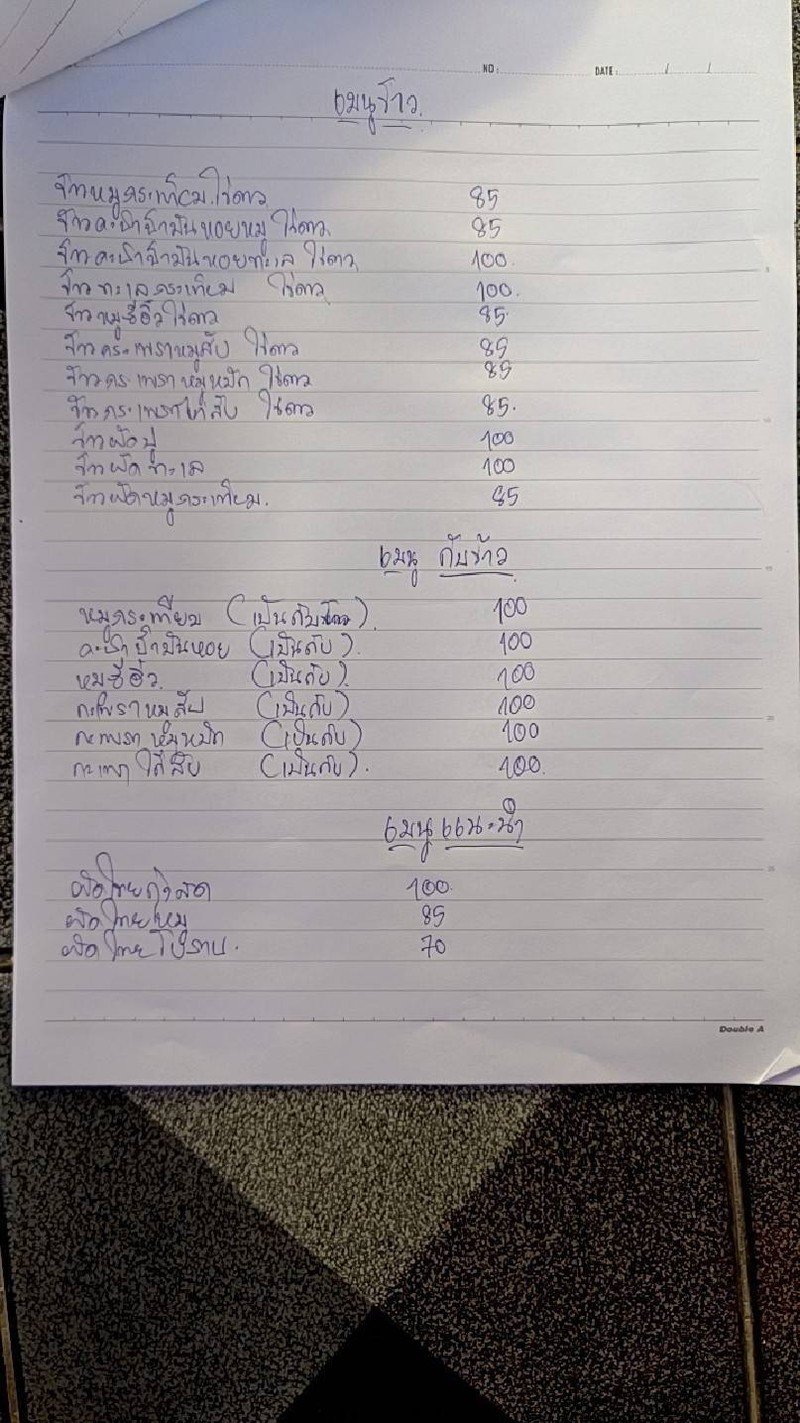 NO: DATE: / /
เมนูข้าว
ข้าวหมูกระเทียม ไข่ดาว 85
ข้าวคะน้าน้ำมันหอยหมู ไข่ดาว 85
ข้าวคะน้าน้ำมันหอยทะเล ไข่ดาว 100
ข้าวทะเลกระเทียม ไข่ดาว 100
ข้าวหมูซีอิ๊วไข่ดาว 85
ข้าวกระเพราหมูสับ ไข่ดาว 85
ข้าวกระเพราหมูหมัก ไข่ดาว 85
ข้าวกระเพราไก่สับ ไข่ดาว 85.
ข้าวผัดปู 100
ข้าวผัดทะเล 100
ข้าวผัดหมูกระเทียม. 85
เมนู กับข้าว
หมูกระเทียม (เป็นกับข้าว). 100
คะน้าน้ำมันหอย (เป็นกับ). 100
หมูซีอิ๊ว. (เป็นกับ). 100
กะเพราหมูสับ (เป็นกับ) 100
กะเพราหมูหมัก (เป็นกับ) 100
กะเพราไก่สับ (เป็นกับ). 100.
เมนูแนะนำ
ผัดไทยกุ้งสด 100.
ผัดไทยหมู 85
ผัดไทยโบราณ. 70
Double A